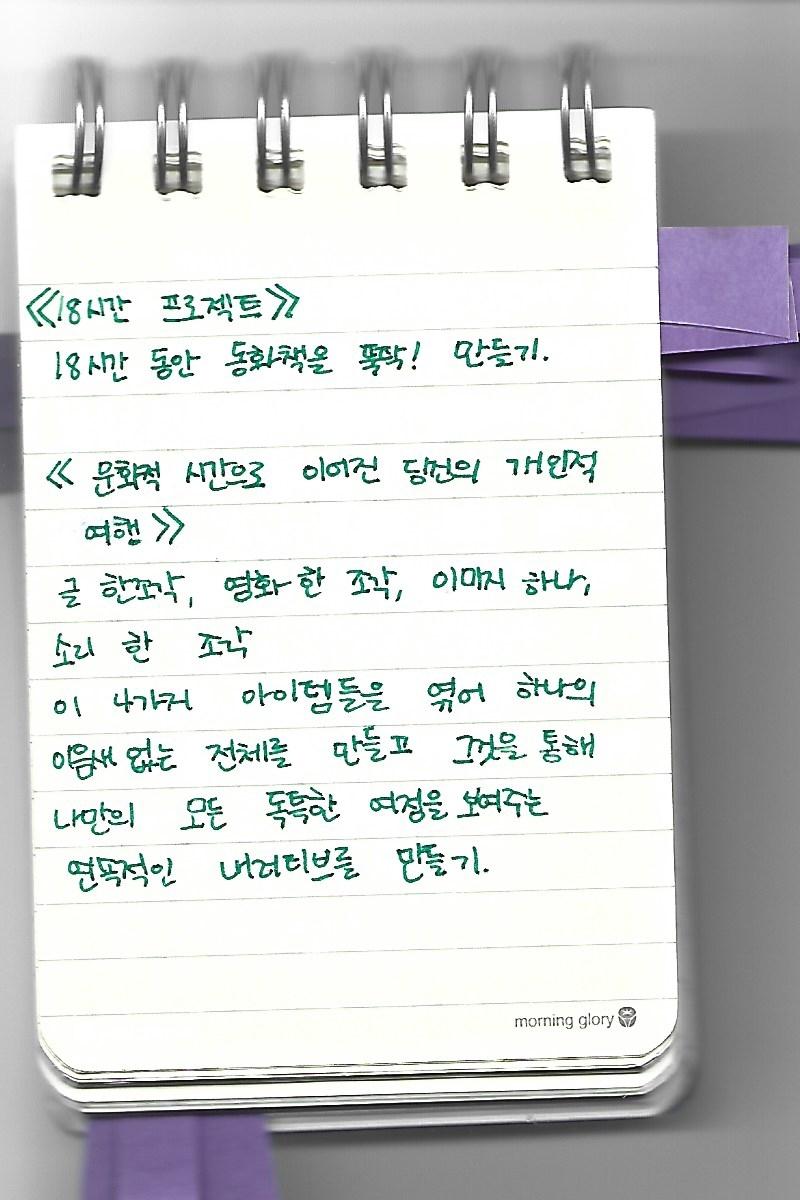 ≪18시간 프로젝트≫
18시간 동안 동화책을 뚝딱! 만들기.
≪ 문화적 시간으로 이어진 당신의 개인적
여행 ≫
글 한조각, 영화 한 조각, 이미지 하나,
소리 한 조각
이 4가지 아이템들을 엮어 하나의
이음새 없는 전체를 만들고 그것을 통해
나만의 모든 독특한 여정을 보여주는
연속적인 내러티브를 만들기.
morning glory